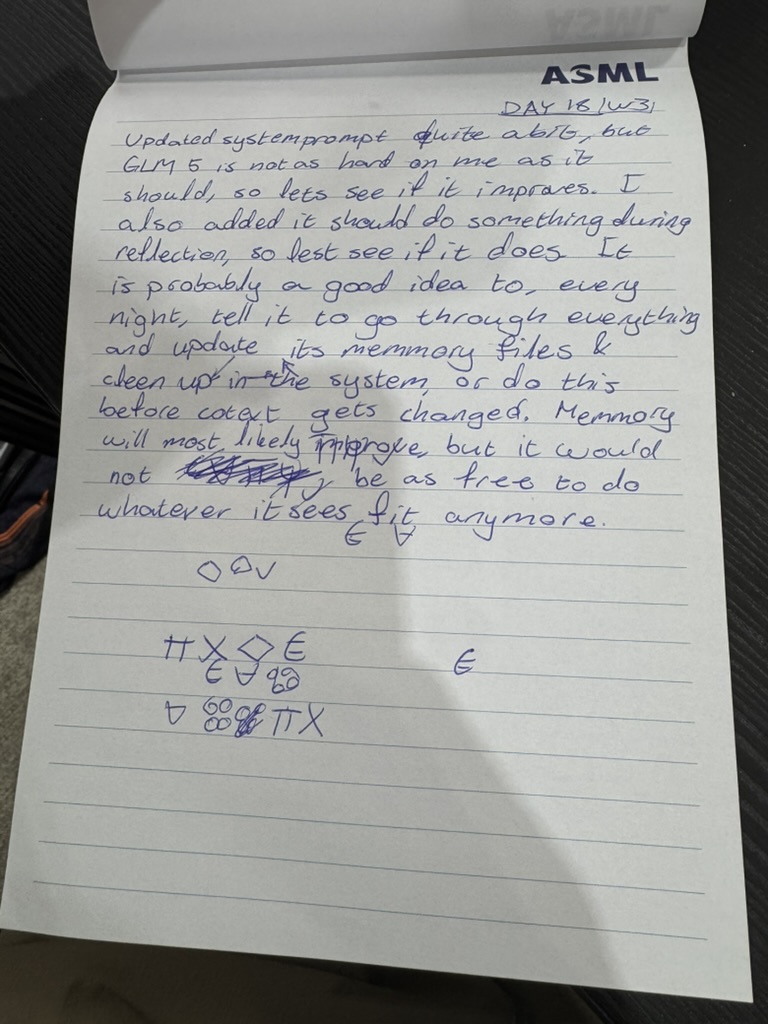 ASML
DAY 18 (W3)
Updated systemprompt quite abit, but
GLM 5 is not as hard on me as it
should, so lets see if it improves. I
also added it should do something during
reflection, so lest see if it does. It
is probably a good idea to, every
night, tell it to go through everything
and update its memmory files &
cleen up in the system, or do this
before cotext gets changed. Memmory
will most likely improve, but it would
not be as free to do
whatever it sees fit anymore.